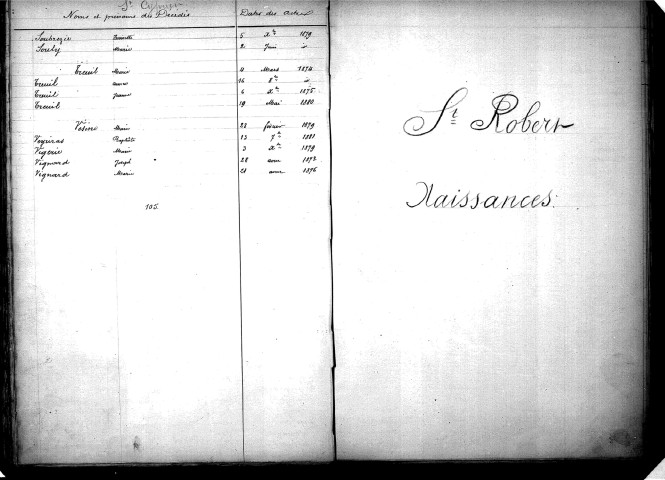 St Cyprien
Noms et prénoms des Décédés Dates des actes
Soubrezie 5 Xbre 1879
Souly Marie 2 Juin
Treuil Marie 4 Mars 1874
Treuil 16
Treuil Jeanne 6 Xbre 1875
Treuil 19 Mai 1880
Vésine 22 février 1879
13 7bre 1881
Vigerie Marie 3 Xbre 1879
Vignard Joseph 28 1873
Vignard Marie 21 1876
105
St Robert
Naissances